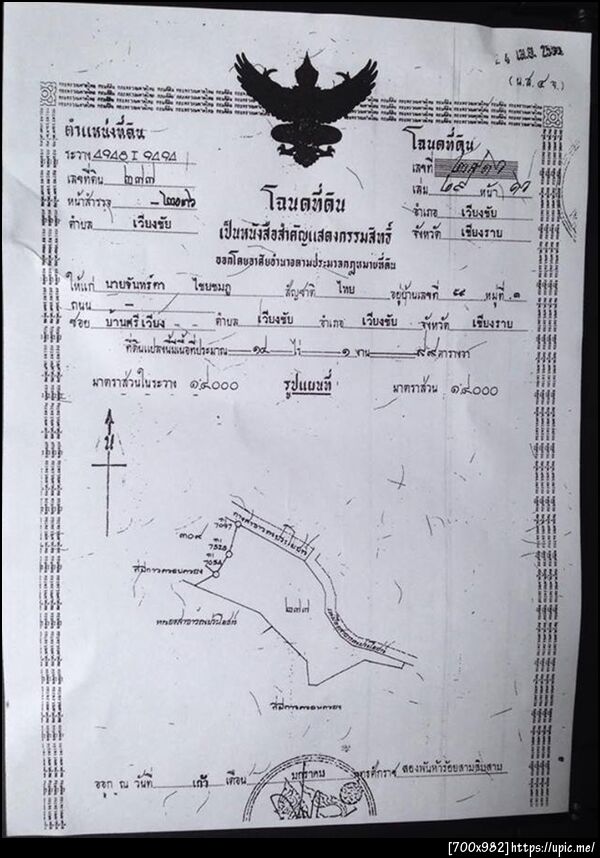 (น.ส.๔ จ.)
ตำแหน่งที่ดิน
ระวาง 4948 I 9494
เลขที่ดิน ๒๗๗
หน้าสำรวจ
ตำบล เวียงชัย
โฉนดที่ดิน
เลขที่
เล่ม หน้า
อำเภอ เวียงชัย
จังหวัด เชียงราย
โฉนดที่ดิน
เป็นหนังสือสำคัญแสดงกรรมสิทธิ์
ออกโดยอาศัยอำนาจตามประมวลกฎหมายที่ดิน
ให้แก่ นายจันทร์ตา ไชยชมภู สัญชาติ ไทย อยู่บ้านเลขที่ ๕๕ หมู่ที่ ๑
ถนน –
ซอย บ้านศรีเวียง - - ตำบล เวียงชัย อำเภอ เวียงชัย จังหวัด เชียงราย
ที่ดินแปลงนี้มีเนื้อที่ประมาณ ๑๔ ไร่ ๑ งาน ๙๙ ตารางวา
มาตราส่วนในระวาง ๑:๔๐๐๐ รูปแผนที่ มาตราส่วน ๑:๔๐๐๐
น
๓๐๙
ที่มีการครอบครอง
หนองสาธารณประโยชน์
๒๗๗
ทางสาธารณประโยชน์
ที่มีการครอบครอง
ออก ณ วันที่ เก้า เดือน มกราคม พุทธศักราช สองพันห้าร้อยสามสิบสาม
[700x982]https://upic.me/